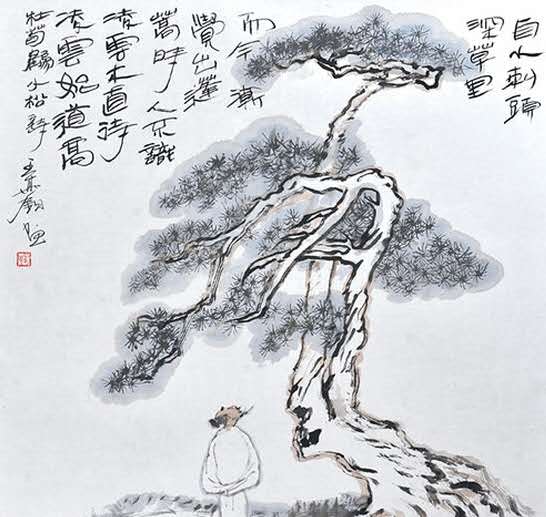 自小刺頭
深草里
而今漸
覺出蓬
蒿時人不識
凌雲木直待
凌雲始道高
杜荀鶴小松詩